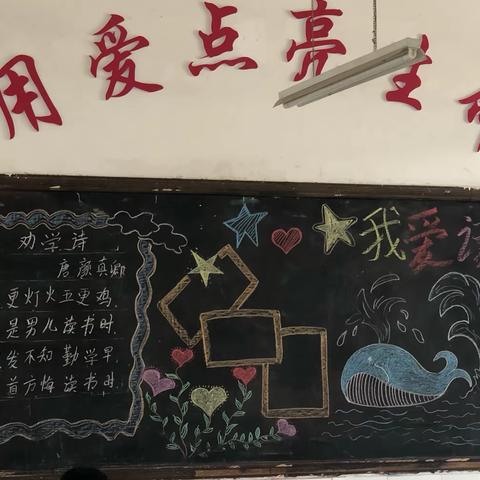 用爱点亮生
劝学诗
唐颜真卿
更灯火五更鸡,
是男儿读书时.
发不知勤学早,
首方悔读书时.
我爱读